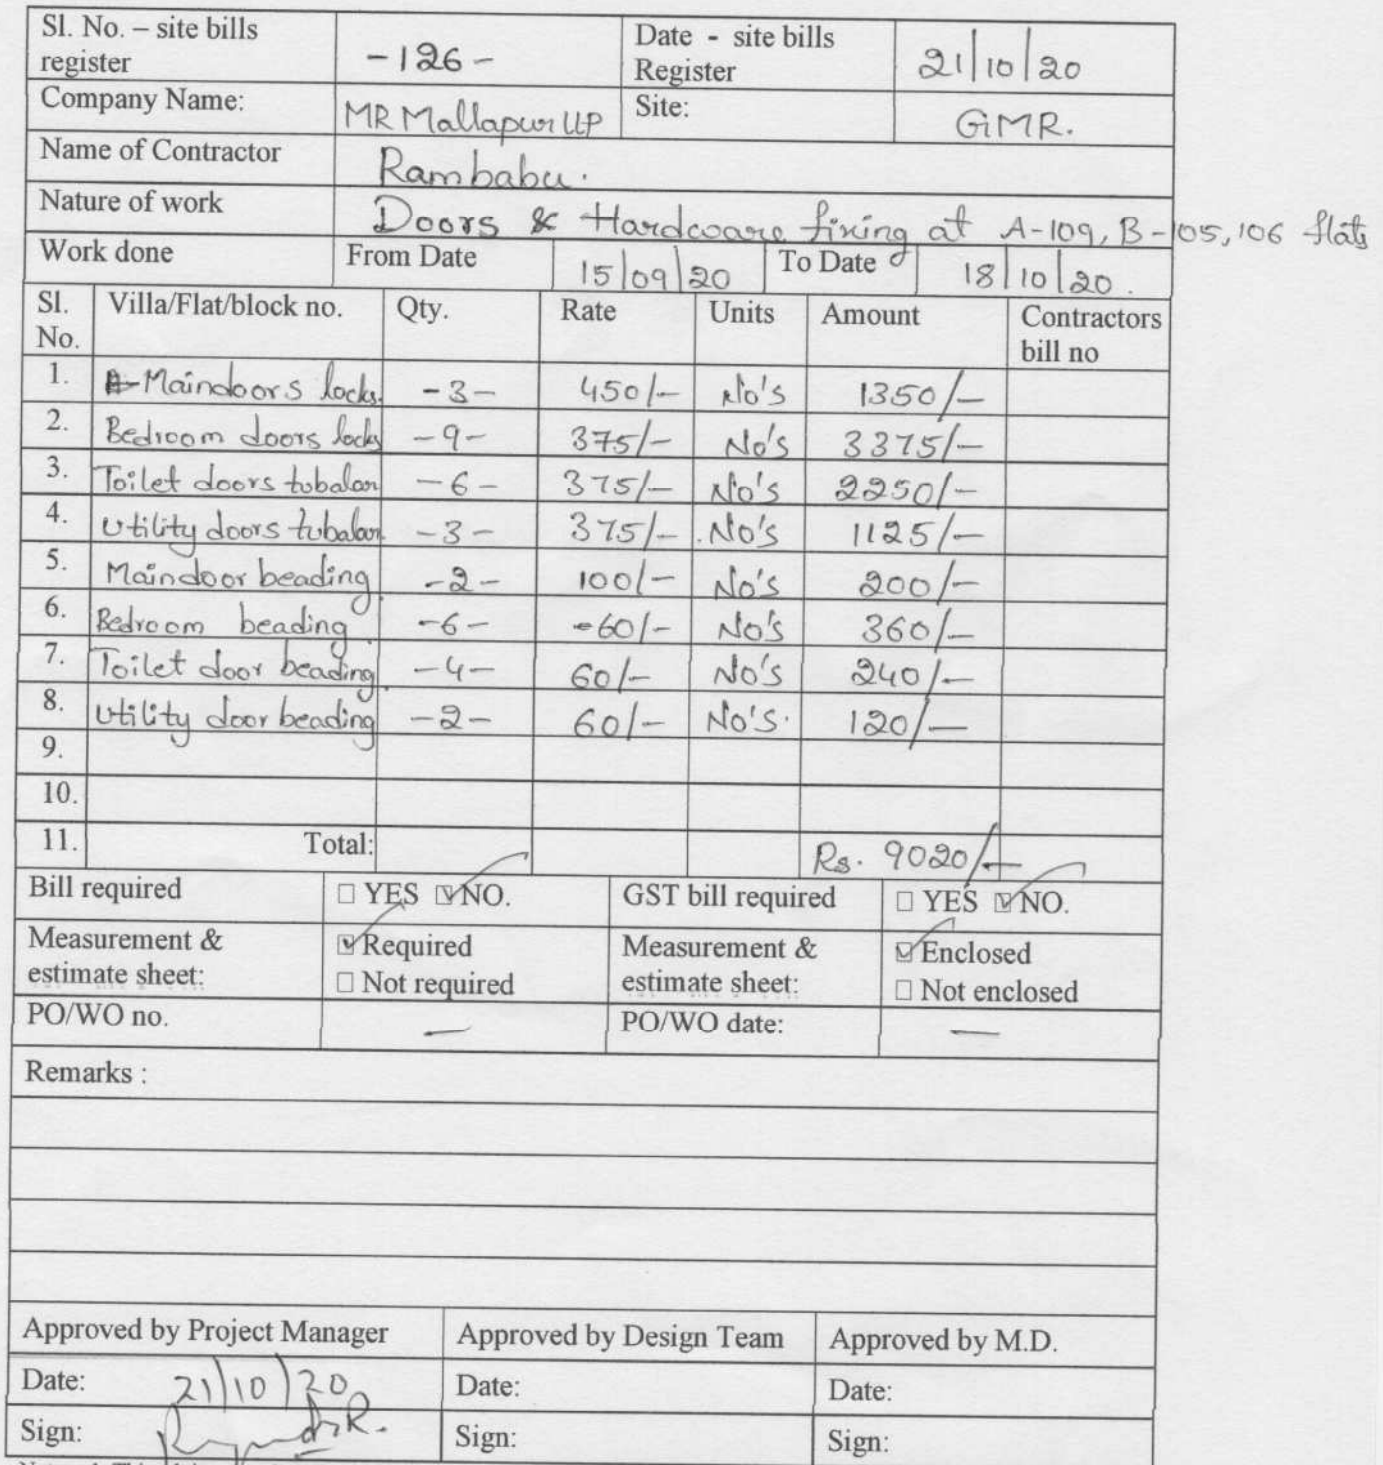 Sl. No. – site bills register -126- Date - site bills Register 21/10/20
Company Name: MR Mallapur LLP Site: GMR.
Name of Contractor Rambabu.
Nature of work Doors & Hardware fixing at A-109, B-105, 106 flats
Work done From Date 15/09/20 To Date 18/10/20.
Sl. No. Villa/Flat/block no. Qty. Rate Units Amount Contractors bill no
1. Maindoors locks -3- 450/- No's 1350/-
2. Bedroom doors locks -9- 375/- No's 3375/-
3. Toilet doors tubalar -6- 375/- No's 2250/-
4. Utility doors tubalar -3- 375/- No's 1125/-
5. Maindoor beading -2- 100/- No's 200/-
6. Bedroom beading -6- -60/- No's 360/-
7. Toilet door beading -4- 60/- No's 240/-
8. Utility door beading -2- 60/- No's. 120/-
9.
10.
11. Total: Rs. 9020/-
Bill required ☐ YES ☑ NO. GST bill required ☐ YES ☑ NO.
Measurement & estimate sheet: ☑ Required ☐ Not required Measurement & estimate sheet: ☑ Enclosed ☐ Not enclosed
PO/WO no. — PO/WO date: —
Remarks :
Approved by Project Manager Approved by Design Team Approved by M.D.
Date: 21/10/20 Date: Date:
Sign: Sign: Sign: